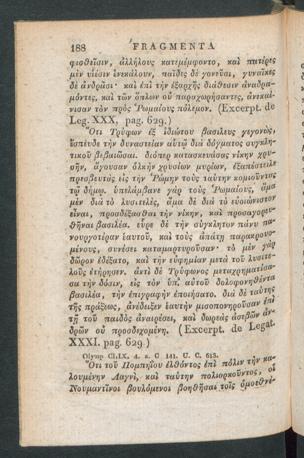 188 FRAGMENTA
φισθεῖσιν, ἀλλήλους κατεμέμφοντο, καὶ πατέρες
μὲν υἱέσιν ἐνεκάλουν, παῖδες δὲ γονεῦσι, γυναῖκες
δὲ ἀνδράσι· καὶ ἐπὶ τὴν ἐξαρχῆς διάθεσιν ἀναδρα-
μόντες, καὶ τῶν ὅπλων οὐ παραχωρήσαντες, ἀνεκαί-
νισαν τὸν πρὸς Ῥωμαίους πόλεμον. (Excerpt. de
Leg. XXX, pag. 629.)
Ὅτι Τρύφων ἐξ ἰδιώτου βασιλεὺς γεγονὼς,
ἔσπευδε τὴν δυναστείαν αὑτῷ διὰ δόγματος συγκλη-
τικοῦ βεβαιῶσαι. διόπερ κατασκευάσας νίκην χρυ-
σῆν, ἄγουσαν ὁλκὴν χρυσίων μυρίων, ἐξαπέστειλε
πρεσβευτὰς εἰς τὴν Ῥώμην τοὺς ταύτην κομιοῦντας
τῷ δήμῳ. ὑπελάμβανε γὰρ τοὺς Ῥωμαίους, ἅμα
μὲν διὰ τὸ λυσιτελὲς, ἅμα δὲ διὰ τὸ εὐοιώνιστον
εἶναι, προσδέξασθαι τὴν νίκην, καὶ προσαγορευ-
θῆναι βασιλέα. εὗρε δὲ τὴν σύγκλητον πάνυ πα-
νουργοτέραν ἑαυτοῦ, καὶ τοὺς ἀπάτῃ παρακρουο-
μένους, συνέσει καταμαρτυροῦσαν· τὸ μὲν γὰρ
δῶρον ἐδέξατο, καὶ τὴν εὐφημίαν μετὰ τοῦ λυσιτε-
λοῦς ἐτήρησεν. ἀντὶ δὲ Τρύφωνος μεταχρηματίσα-
σα τὴν δόσιν, εἰς τὸν ὑπ' αὐτοῦ δολοφονηθέντα
βασιλέα, τὴν ἐπιγραφὴν ἐποιήσατο. διὰ δὲ ταύτης
τῆς πράξεως, ἀνέδειξεν ἑαυτὴν μισοπονηροῦσαν ἐπὶ
τῇ τοῦ παιδὸς ἀναιρέσει, καὶ δωρεὰς ἀσεβῶν ἀν-
δρῶν οὐ προσδεχομένην. (Excerpt. de Legat.
XXXI. pag. 629)
Olymp CLIX, 4. a. C 141. U. C. 613.
Ὅτι τοῦ Πομπηΐου ἐλθόντος ἐπὶ πόλιν τὴν κα-
λουμένην Λαγνὶ, καὶ ταύτην πολιορκοῦντος, οἱ
Νουμαντῖνοι βουλόμενοι βοηθῆσαι τοῖς ὁμοεθνέ-